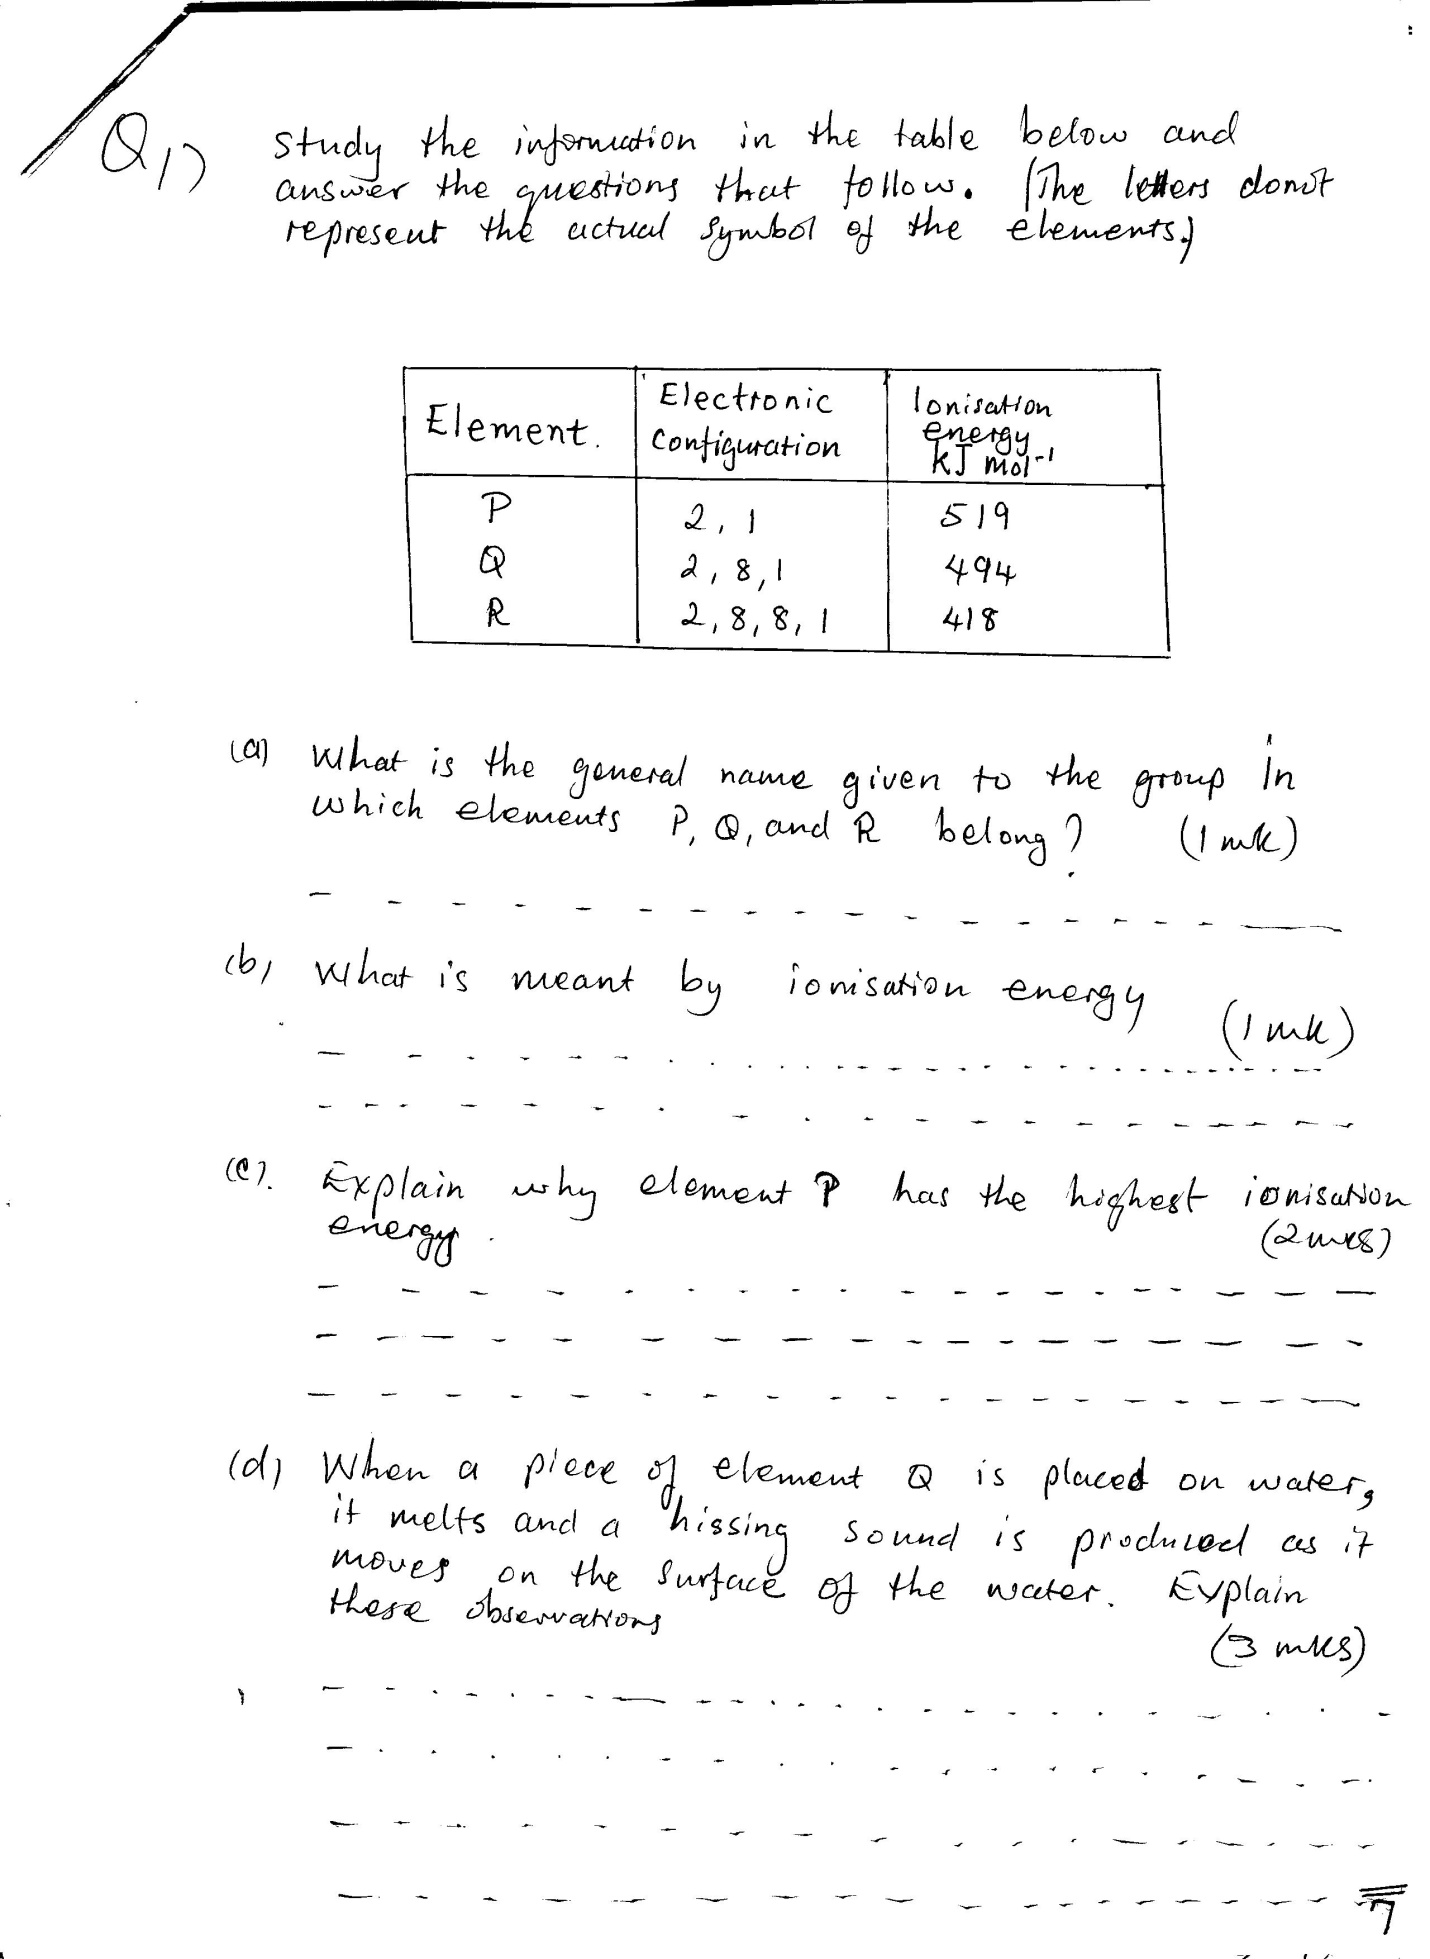 Q1) Study the information in the table below and
answer the questions that follow. (The letters donot
represent the actual symbol of the elements.)
Element. Electronic Configuration Ionisation energy kJ mol⁻¹
P 2, 1 519
Q 2, 8, 1 494
R 2, 8, 8, 1 418
(a) What is the general name given to the group in
which elements P, Q, and R belong? (1 mk)
(b) What is meant by ionisation energy
(1 mk)
(c). Explain why element P has the highest ionisation
energy. (2 mks)
(d) When a piece of element Q is placed on water,
it melts and a hissing sound is produced as it
moves on the surface of the water. Explain
these observations
(3 mks)
7